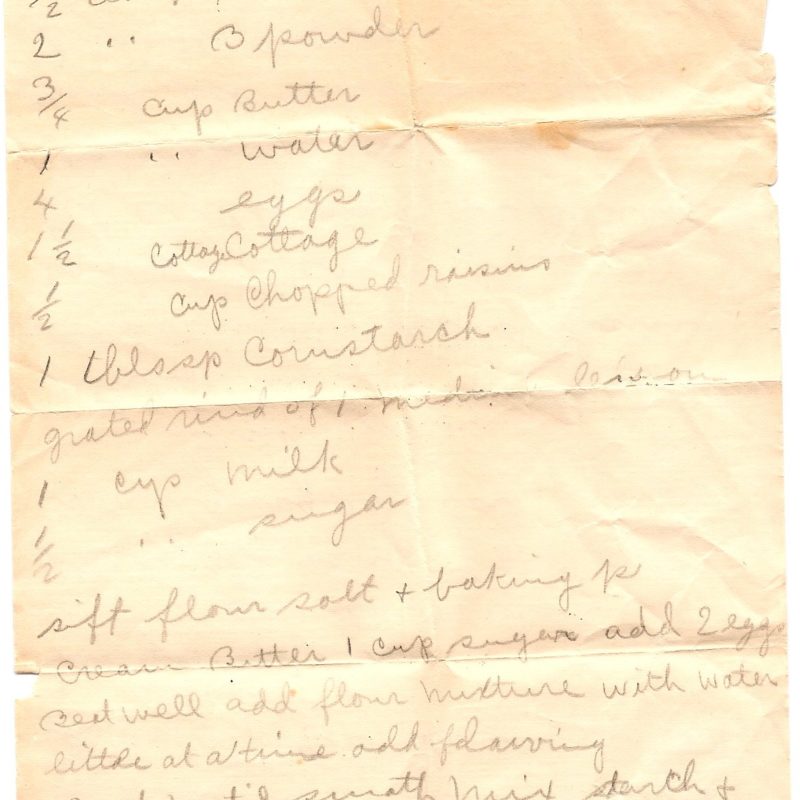 1/2
2 " B powder
3/4 cup Butter
1 " water
4 eggs
1 1/2 Cottag Cottage
1/2 cup Chopped raisins
1 tblssp Cornstarch
grated rind of 1 medium lemon
1 cup milk
1/2 " sugar
sift flour salt + baking p
Cream Butter 1 cup sugar add 2 eggs
Beat well add flour mixture with water
little at a time add flavoring
smooth mix starch +